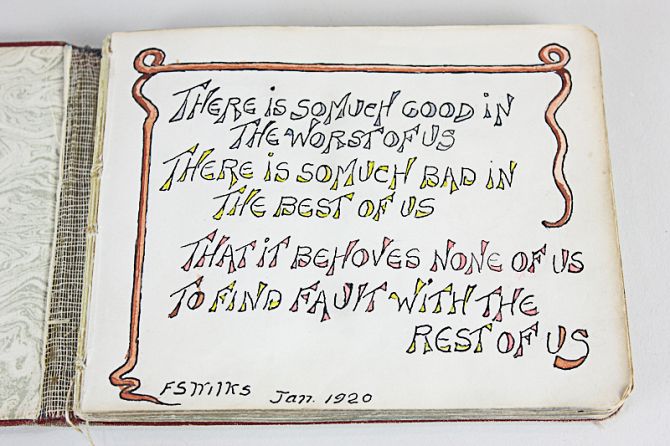 THERE IS SOMUCH GOOD IN
THE WORST OF US
THERE IS SOMUCH BAD IN
THE BEST OF US
THAT IT BEHOVES NONE OF US
TO FIND FAULT WITH THE
REST OF US
FSWILKS Jan. 1920